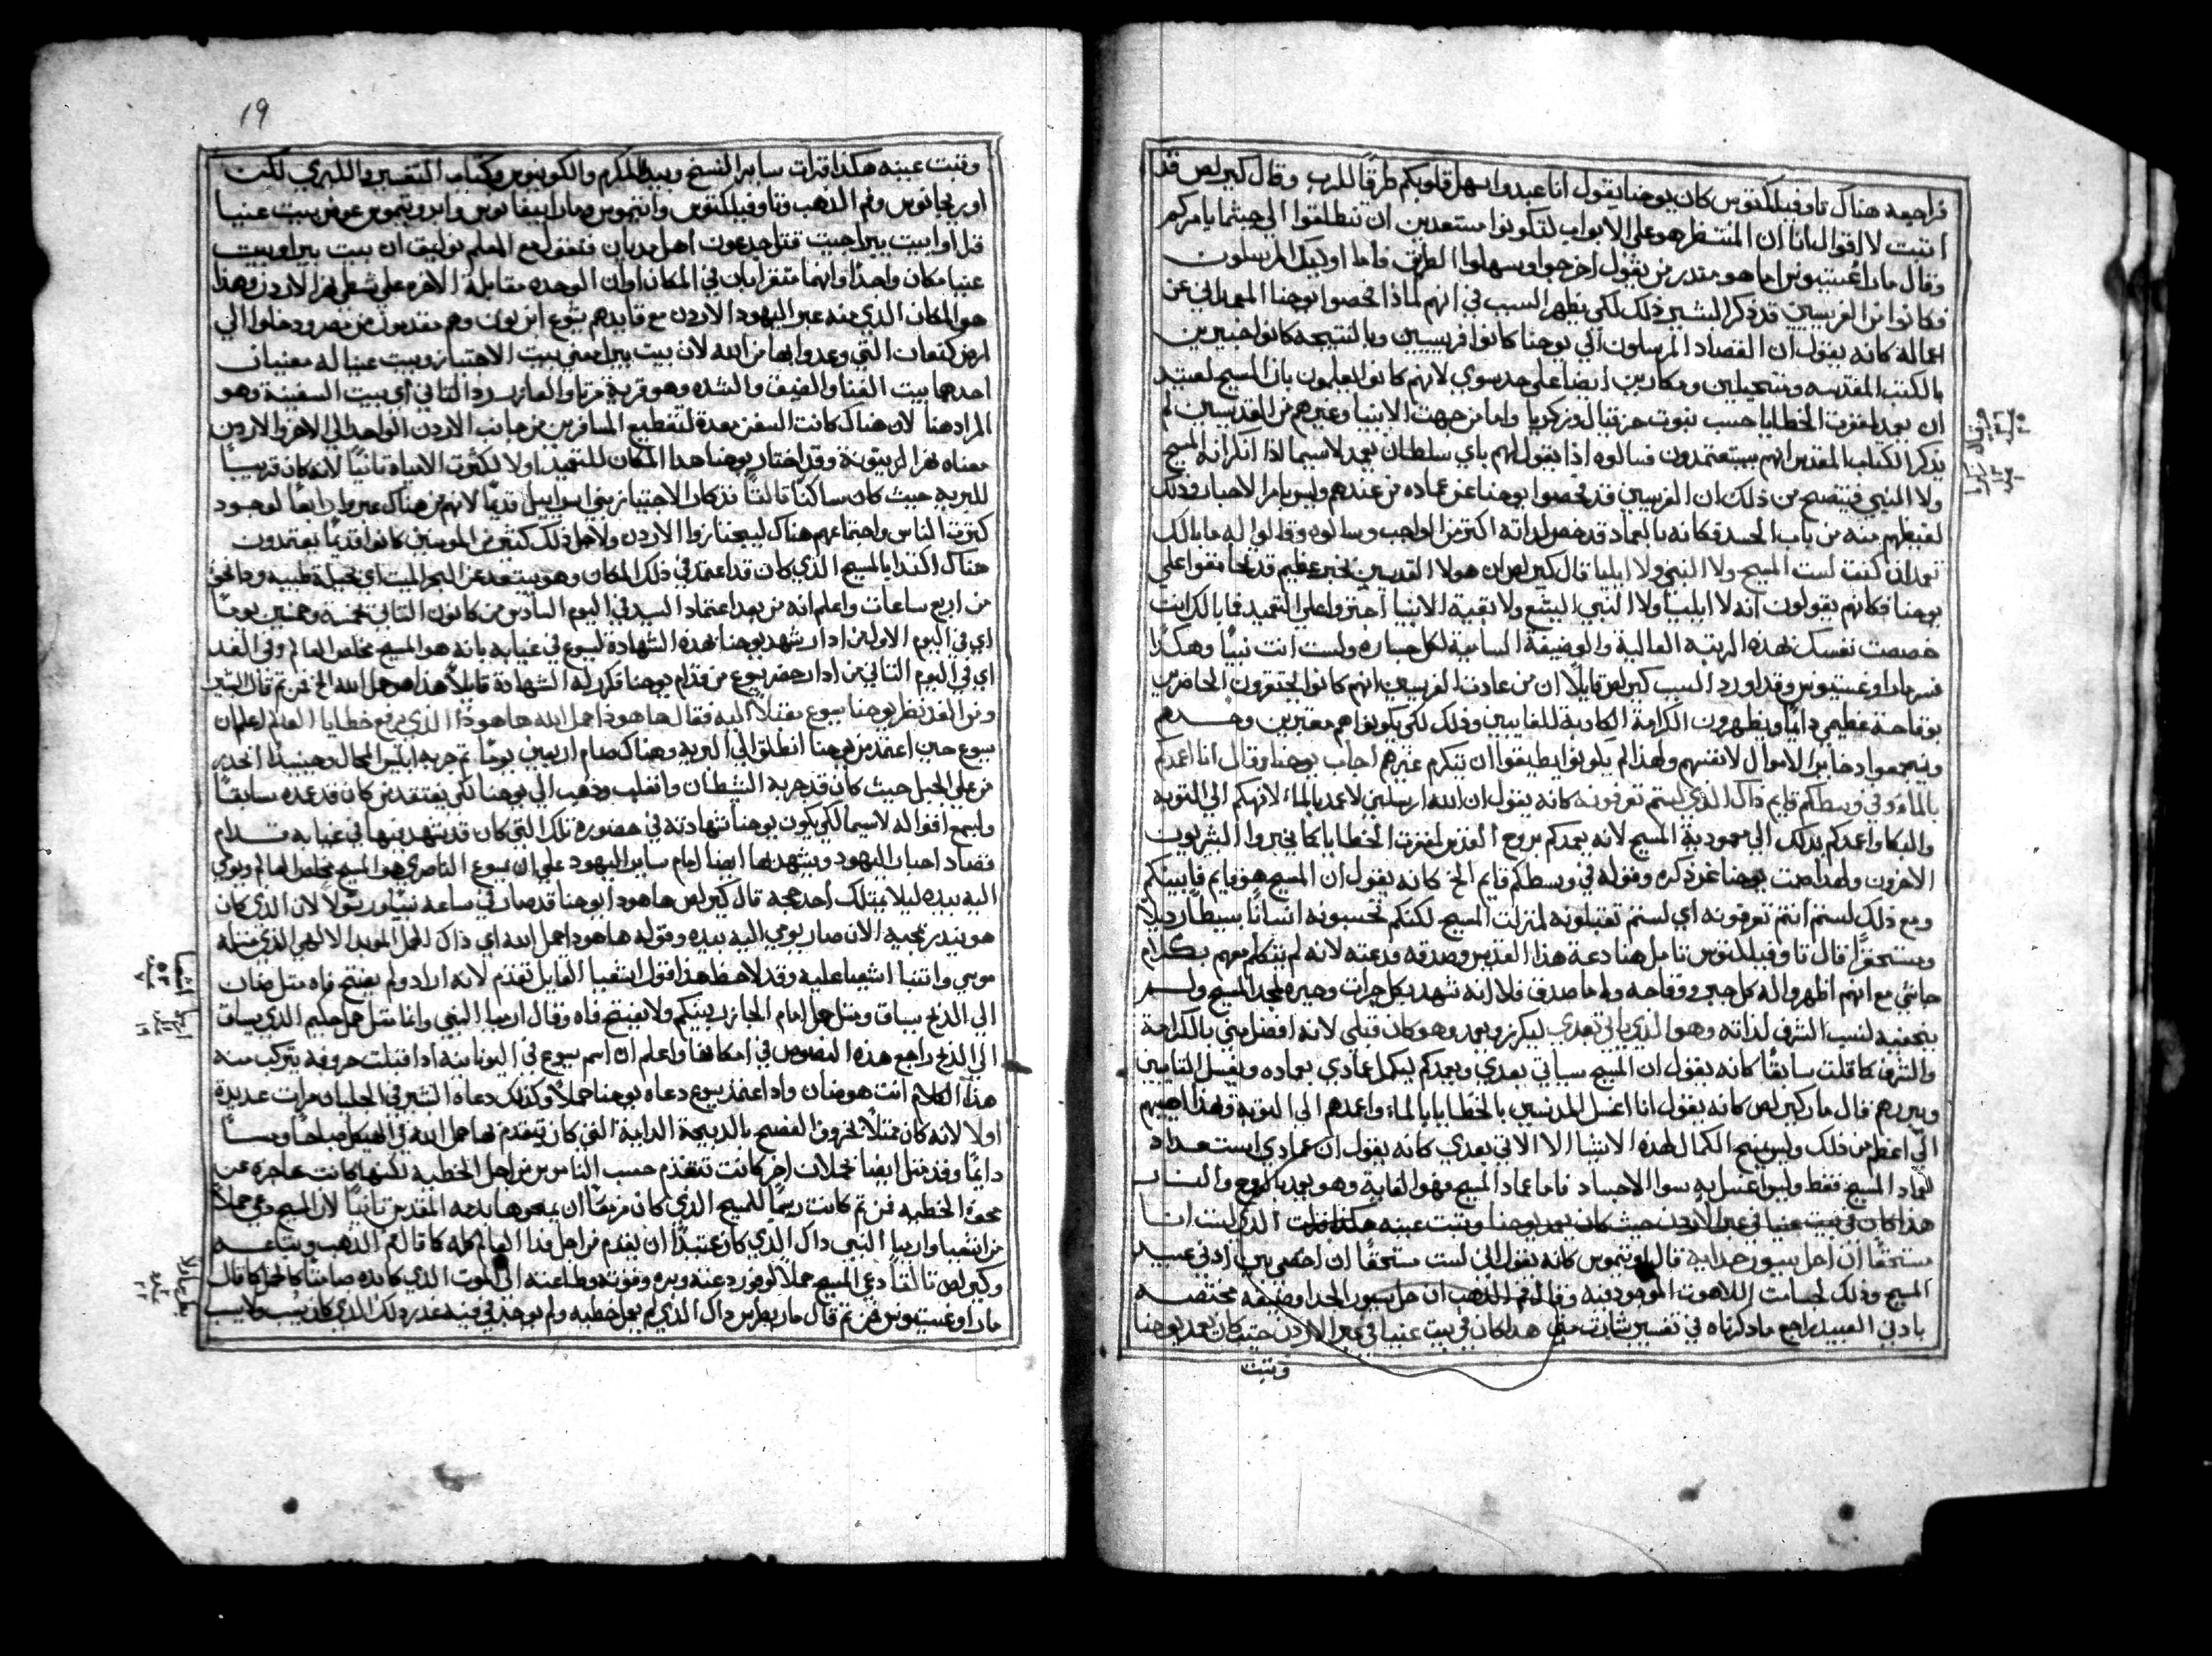 فراجعه هناك تاوفيلكتوس كان يوحنا يقول انا عبد واسهل قلوبكم طرقًا للرب وقال كيرلص قد
اتيت لا اقوالنا ان المنتظر هو على الابواب لتكونوا مستعدين ان تنطلقوا الي حيثما يامركم
وقال مار اغستينوس اما هو منذر من يقول اخرجوا وسهلوا الطريق واما اوليك المرسلون
فكانوا من الفريسيين قد ذكر البشير ذلك لكي يظهر السبب في انهم لماذا فحصوا يوحنا المعمداني عن
اعماله كانه يقول ان القصاد المرسلون الي يوحنا كانوا افريسيين وبالنتيجه كانوا خبيرين
بالكتب المقدسه ومتحيلين ومكارين ايضا على حد سوي لانهم كانوا يعلمون بان المسيح لعتيد
ان يعمد لمغفرت الخطايا حسب نبوت حزقيال وزكريا واما من جهت الانبيا وغيرهم من القديسين لم
يذكر الكتاب المقدس انهم سيعمدون فسالوه اذا بقولهم باي سلطان تعمد لاسيما اذا انكر انه المسيح
ولا النبي فيتضح من ذلك ان الفريسيين قد فحصوا يوحنا عن عماده من عندهم وليس بامر الاحبار وذلك
لغيظهم منه من باب الحسد فكانه بالعماد قد خص لذاته اكثر من الواجب وسالوه وقالوا له ما بالك
تعمد ان كنت لست المسيح ولا النبي ولا ايليا قال كيرلص ان هولا القديسين بخبر عظيم قد تحامقوا على
يوحنا فكانهم يقولون انه لا ايليا ولا النبي اليشع ولا بقية الانبيا اجتروا على التعميد فما بالك انت
خصصت نفسك بهذه الرتبه العالية والوضيفة السامية لكل جساره ولست انت نبيًا وهكذا
فسر مار اوغستينوس وقد اورد السبب كيرلص قايلًا ان من عادت الفريسيين انهم كانوا يحتقرون الحاضرين
بوقاحة عظيمه دايمًا ويظهرون الكرامة الكادبة للغايبين وذلك لكي يكونوا هم معتبرين وحدهم
ويجمعوا دخاير الاموال لانفسهم ولهذا لم يكونوا يطيقوا ان يتكرم غيرهم اجاب يوحنا وقال انا اعمدكم
بالماء وفي وسطكم قايم ذاك الذي لستم تعرفونه كانه يقول ان الله ارسلني لاعمد بالماء لانهكم الي التوبه
والبكا واعدكم بذلك الي معمودية المسيح لانه يعمدكم بروح القدس لمغفرت الخطايا كما يخبروا البشيريون
الاخرون ولهذا صمت يوحنا عن ذكره وقوله في وسطكم قايم الخ كانه يقول ان المسيح هو قايم فيما بينكم
ومع ذلك لستم انتم تعرفونه اي لستم تقبلونه لمنزلت المسيح لكنكم تحسبونه انسانًا بسيطًا رديلًا
ومستحقرًا قال تاوفيلكتوس تامل هنا دعة هذا القديس وصدقه ودعته لانه لم يتكلم معهم بكلام
جاشي مع انهم اظهروا له كل جبر ووقاحه واما صدقه فلانه شهد بكل جرات وحيره لمجد المسيح ولم
يخفيه لنسب الشرف لذاته وهو الذي ياتي بعدي ليكرز ويعمد وهو كان قبلي لانه افضل مني بالكرامة
والشرف كما قلت سابقًا كانه يقول ان المسيح سياتي بعدي ويعمدكم ليكمل عمادي بعماده ويغسل التايبين
ويبررهم قال مار كيرلص كانه يقول انا اغسل المدنسين بالخطايا بالماء واعمدهم الي التوبة وهذا
الي اعظم من ذلك وليس يمنح الكمال لهذه الاشيا الا الاتي بعدي كانه يقول ان عمادي استعداد
لعماد المسيح فقط وليس اغسل به سوا الاجساد فاما عماد المسيح فهو الغاية وهو يعمد بالروح والنار
هذا كان في بيت عنيا في عبر الاردن حيث كان يعمد يوحنا وبتت عينه هكذا قرات الذي لست انا
مستحقًا ان احل سيور حذايه قال اوتيموس كانه يقول اني لست مستحقًا ان احصى بين ادني عبيد
المسيح وذلك لجسامت اللاهوت الموجود فيه وقال فم الذهب ان حل سيور الحذا وضيفه مختصه
بادني العبيد راجع ما ذكرناه في تفسير بشارت متي هذا كان في بيت عنيا في عبر الاردن حيث كان يعمد يوحنا
وبتت
19
وبتت عينه هكذا قرات ساير النسخ وبيد المكرم والكوينوس وكتاب التفسير الكبري لكنت
اوريجانوس وفم الذهب وتاوفيلكتوس وانتيموس ومار ابيفانوس وابرونيموس عوض بيت عنيا
قرأوا بيت بيرا حيث قتل جدعون اهل مديان فتقول مع المعلم تولبق ان بيت بيرا وبيت
عنيا مكان واحدًا وانهما متقرابان في المكان اوان الوحده مقابلة الاخره على شطي نهر الاردن وهذا
هو المكان الذي منه عبر اليهود الاردن مع قايدهم يشوع ابن نون وهم مقدمون من مصر ودخلوا الي
ارض كنعان التي وعدوا بها من الله لان بيت بيرا يعني بيت الاجتياز وبيت عنيا له معنيان
احدهما بيت الفنا والضيق والشده وهو قرية مرتا والعازر والتاني اي بيت السفينة وهو
المراد هنا لان هناك كانت السفن معدة لتقطيع المسافرين من جانب الاردن الواحد الي الاخر والاردن
معناه نهر الزيتونة وقد اختار يوحنا هذا المكان للتعميد اولا لكثرت المياه تانيًا لانه كان قريبًا
للبريه حيث كان ساكنا تالتًا تذكار الاجتياز بني اسراييل قديمًا لانهم من هناك عبروا رابعًا لوجود
كثرت الناس واجتماعهم هناك ليجتازوا الاردن ولاجل ذلك كثير من المومنين كانوا قديمًا يعتمدون
هناك اقتدا بالمسيح الذي كان قد اعتمد في ذلك المكان وهو يبتعد عن البحر الميت اي بحيرة طبريه ودالحو
من اربع ساعات واعلم انه من بعد اعتماد السيد في اليوم السادس من كانون التاني بخمسة وخمسين يومًا
اي في اليوم الاول من ادار شهد يوحنا هذه الشهادة ليسوع في غيابه بانه هو المسيح مخلص العالم وفي الغد
اي في اليوم التاني من ادار حضر يسوع من قدام يوحنا فكرر له الشهادة قايلًا هذا هو حمل الله الخ فمن تم قال البشير
ومن الغد نظر يوحنا يسوع مقبلًا اليه فقال ها هوذا حمل الله ها هوذا الذي يرفع خطايا العالم اعلم ان
يسوع حين اعتمد من يوحنا انطلق الي البريه وهناك صام اربعين يومًا تم جربه ابليس المحال وحينيذ انحدر
من على الجبل حيث كان قد جربه الشيطان وانغلب وذهب الي يوحنا لكي يفتقد من كان قد عمده سابقًا
وليسمع اقواله لاسيما لكي يكون يوحنا شهادته في حضوره تلك التي كان قد شهد بها في غيابه قدام
قصاد احبار اليهود ويشهد بها ايضا امام ساير اليهود على ان يسوع الناصري هو المسيح مخلص العالم ويومي
اليه بيده ليلا يمتلك احد حجه قال كيرلص ها هوذا يوحنا قد صار في ساعه نبيًا ورسولًا لان الذي كان
هو ينذر بمجيه الان صار يومي اليه بيده وقوله ها هوذا حمل الله اي ذاك الحمل الموبد الالهي الذي مثله
موسي وانتبا اشعيا عليه وقد لاحظ هذا قول اشعيا القايل تقدم لانه اراد ولم يفتح فاه مثل ضان
الي الذبح يساق ومتل حمل امام الجازر يبتكم ولا يفتح فاه وقال ارميا النبي وانا متل حمل حليم الذي يساق
الي الذبح راجع هذه النصوص في امكانها واعلم ان اسم يسوع في اليونانيه ادا قبلت حروفه يتركب منه
هذا الكلام انت هو ضان واد اعتمد يسوع دعاه يوحنا حملًا وكذلك دعاه البشير في الجليان مرات عديدة
اولا لانه كان ممتلًا بخروف الفصح بالذبيحة الدايمة التي كان يتقدم بها حمل الله في الهيكل صباحًا ومساً
دايمًا وقد متل ايضا بحملان اخر كانت تتقدم حسب الناموس من اجل الخطيه لكنها كانت عاجزه عن
محو الخطيه فمن تم كانت رسمًا للمسيح الذي كان مزمعًا ان يمحوها بدمه المقدس تانيًا لان المسيح دعي حملًا
من اشعيا وارميا النبي ذاك الذي كان عتيدًا ان يقدم من اجل هذا العالم كله كما قال فم الذهب ومتاعه
وكيرلص تالتا دعي المسيح حملا لوفور دعته وبره وقوته وطاعته الي الموت الذي كابده صامتًا كالحمل كما قال
مار اوغستينوس فمن تم قال مار بطرس ذاك الذي لم يعمل خطيه ولم يوجد في فيه غدر ذلك الذي كان يسب ولا يسب